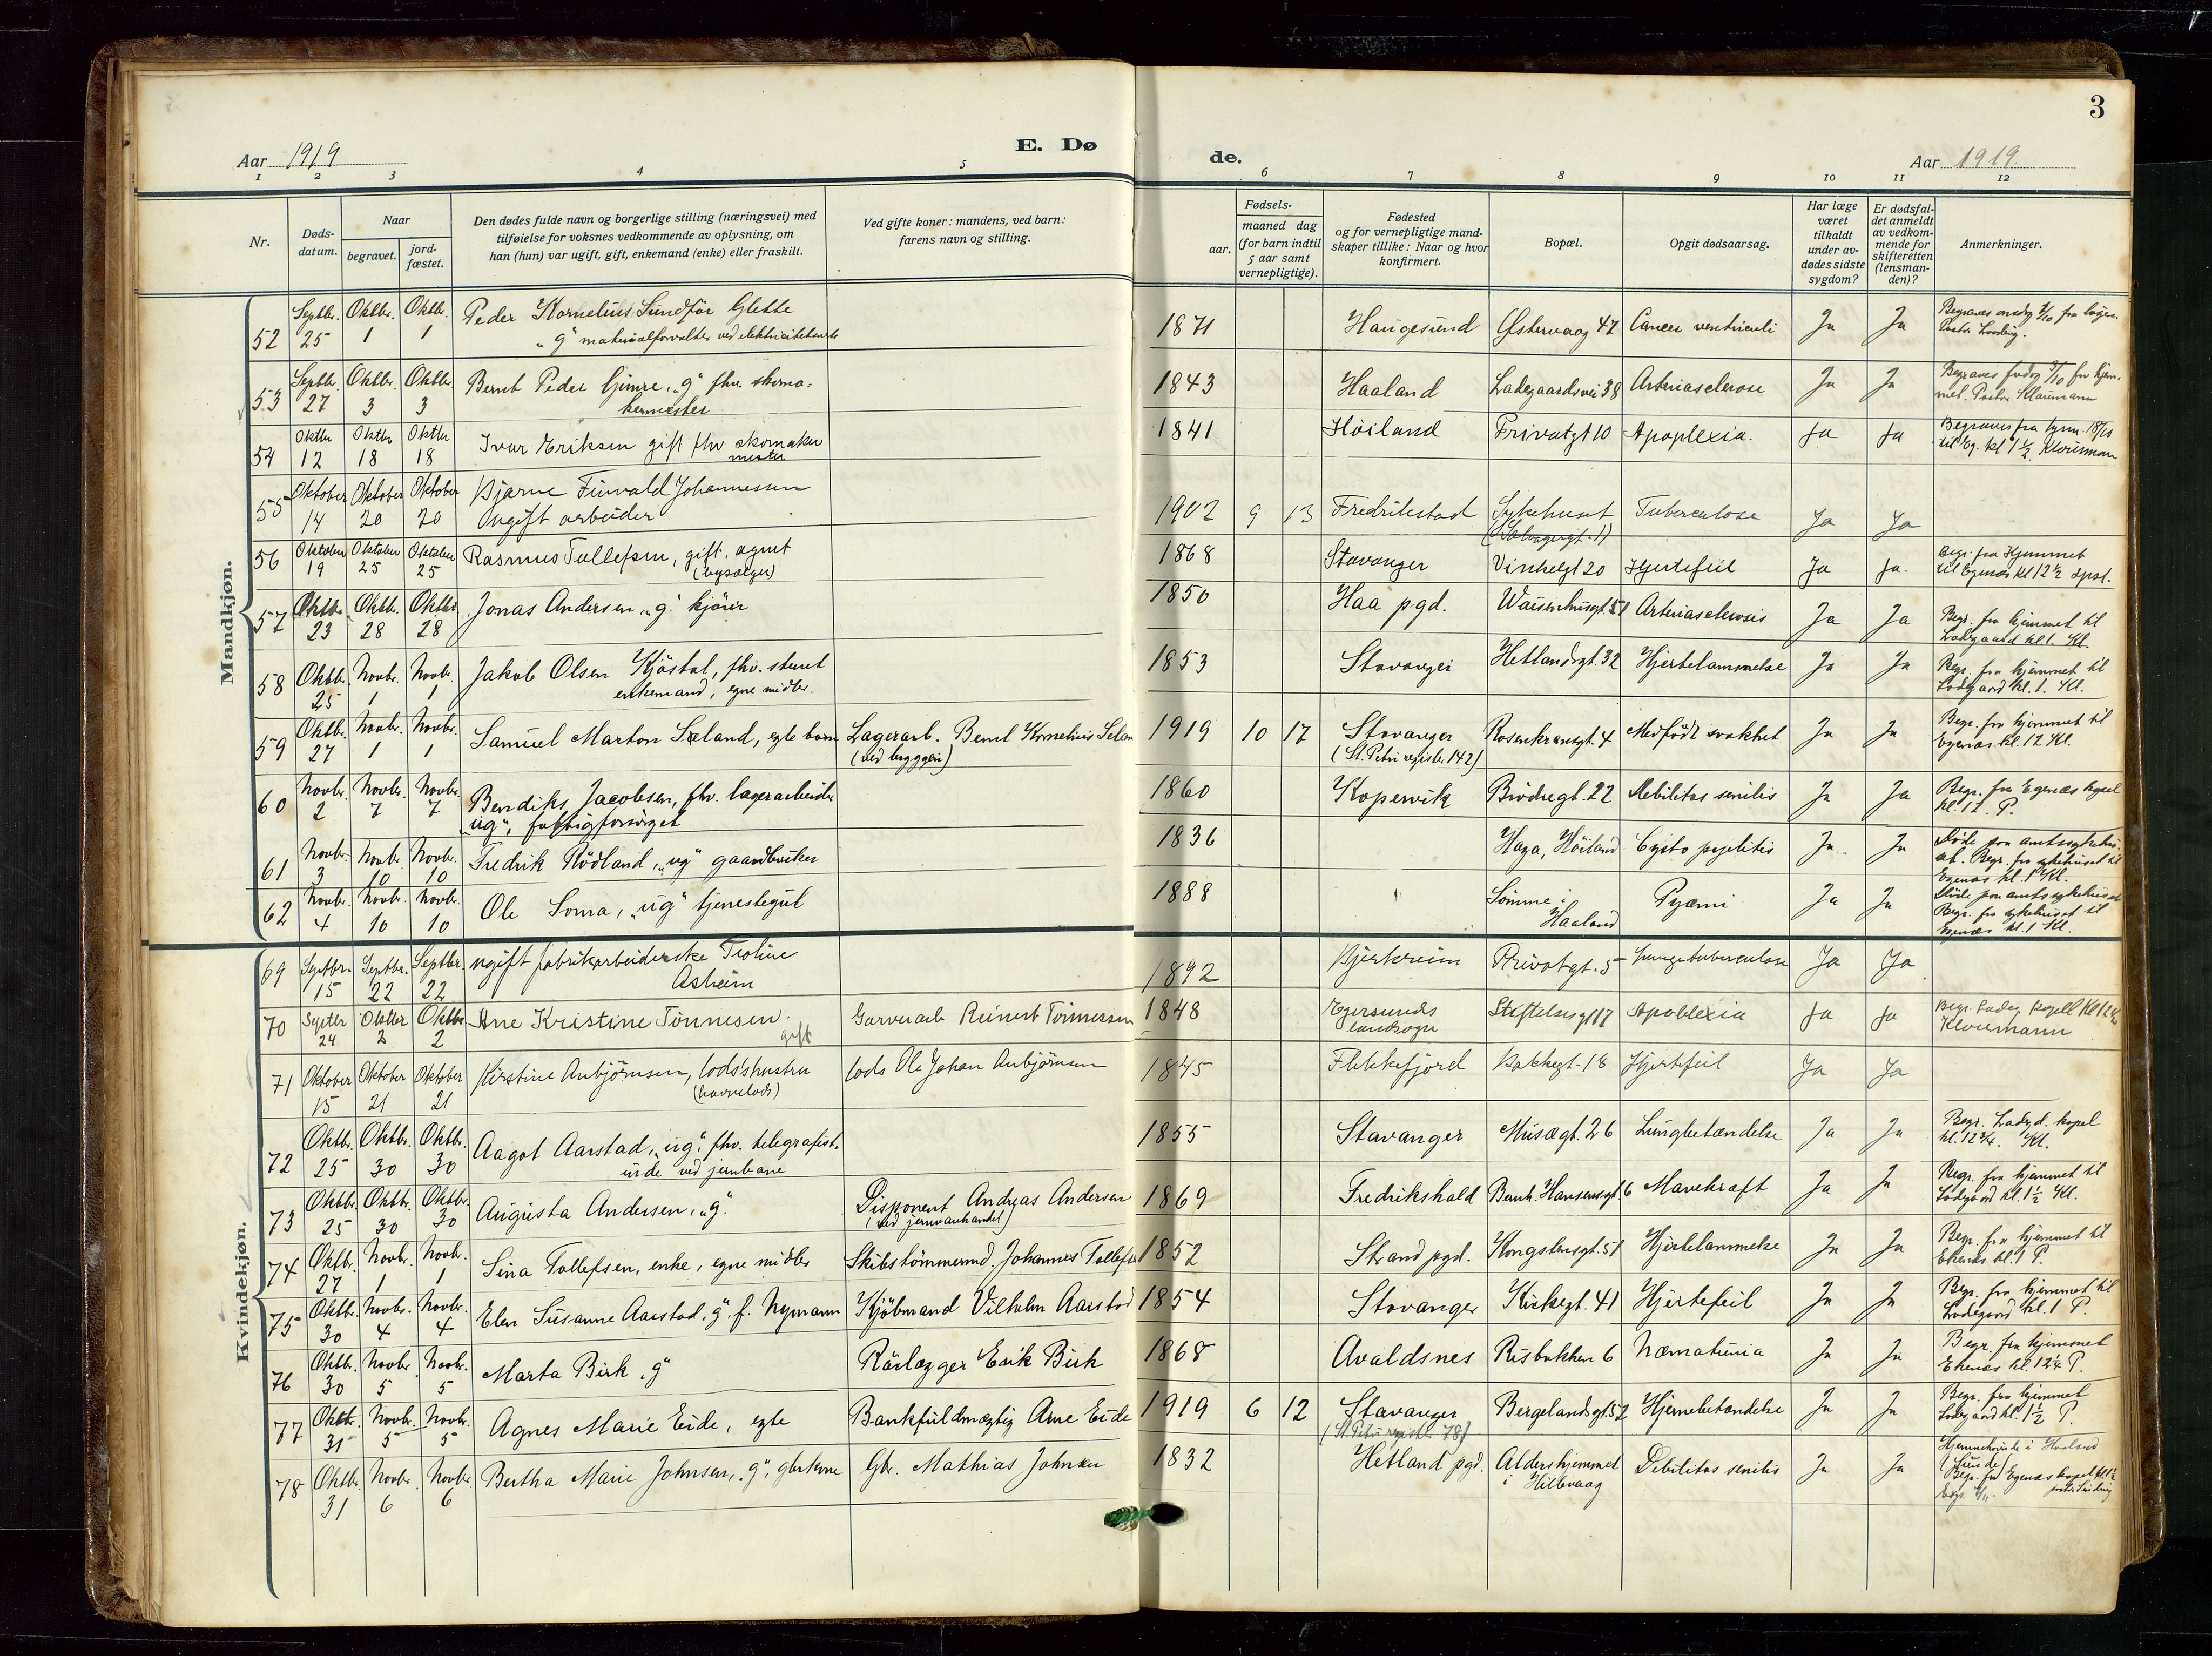 3
Aar 1919
E. Dø
de.
Aar 1919
1 2 3 4 5 6 7 8 9 10 11 12
Nr.
Døds-
datum.
Naar
begravet.
jord-
fæstet.
Den dødes fulde navn og borgerlige stilling (næringsvei) med
tilføielse for voksnes vedkommende av oplysning, om
han (hun) var ugift, gift, enkemand (enke) eller fraskilt.
Ved gifte koner: mandens, ved barn:
farens navn og stilling.
Fødsels-
aar.
maaned dag
(for barn indtil
5 aar samt
vernepligtige).
Fødested
og for vernepligtige mand-
skaper tillike: Naar og hvor
konfirmert.
Bopæl.
Opgit dødsaarsag.
Har læge
været
tilkaldt
under av-
dødes sidste
sygdom?
Er dødsfal-
det anmeldt
av vedkom-
mende for
skifteretten
(lensman-
den)?
Anmerkninger.
Mandkjøn.
52 Septbr. 25 Oktbr. 1 Oktbr. 1 Peder Kornelius Sundför Glette 1871 Haugesund Østervaag 47 Cancer ventriculi Ja Ja
"g" materialforvalter ved elektricitetsverk
53 Septbr. 27 Oktbr. 3 Oktbr. 3 Bernt Peder Gimre, "g" fhv. skoma- 1843 Haaland Ladegaardsvei 38 Arteriasclerose Ja Ja Begraves fredag 3/10 fra hjem-
kermester met. Pastor Kloumann
54 Oktbr 12 Oktbr 18 Oktbr 18 Ivar Eriksen gift fhv skomaker 1841 Høiland Privatgt 10 Apoplexia. Ja Ja Begraves fra hjem. 18/10
mester til Eg. kl 1 1/2 Kloumann
55 Oktober 14 Oktober 20 Oktober 20 Bjarne Johannessen 1902 9 13 Fredrikstad Sykehuset Tuberculose Ja Ja
Ungift arbeider
56 Oktober 19 Oktober 25 Oktober 25 Rasmus Tollefsen, gift, agent 1868 Stavanger Vinkelgt 20 Hjertefeil Ja Ja. Begr. fra Hjemmet
til Egenæs kl 12 1/2
57 Oktbr. 23 Oktbr. 28 Oktbr. 28 Jonas Andersen "g" kjører 1850 Haa pgd. Waisenhusgt. 51 Arteriasclerosis Ja Ja Begr. fra hjemmet til
Ladegaard kl. 1. Kl.
58 Oktbr. 25 Novbr. 1 Novbr. 1 Jakob Olsen Kjøstol, fhv. stuert 1853 Stavanger Hetlandsgt. 32 Hjertelammelse Ja Ja Begr. fra hjemmet til
enkemand, egne midler. Ladegaard kl. 1. Kl.
59 Oktbr. 27 Novbr. 1 Novbr. 1 Samuel Marton Sæland, egte barn Lagerarb. Bernt Kornelius 1919 10 17 Stavanger Rosenkransgt. 4 Medfødt svakhet Ja Ja Begr. fra hjemmet til
(ved bryggeri) (St. Petri register 142) Egenæs kl. 12 Kl.
60 Novbr. 2 Novbr. 7 Novbr. 7 Bendiks Jacobsen, fhv. lagerarbeider 1860 Kopervik Brødregt. 22 Debilitas senilis Ja Ja Begr. fra Egenæs kapel
"ug", fattigforsørget kl. 12. P.
61 Novbr. 3 Novbr. 10 Novbr. 10 Fredrik Rödland, "ug" gaardbruker 1836 Haga, Høiland Cysto pyelitis Ja Ja Døde paa amtssykehus-
et. Begr. fra sykehuset til
Egenæs kl. 1 Kl.
62 Novbr. 4 Novbr. 10 Novbr. 10 Ole Soma, "ug" tjenestegut 1888 Sømme i Haaland Pyæmi Ja Ja Døde paa amtssykehuset
Begr. fra sykehuset til
Egenæs kl. 1 Kl.
Kvindekjøn.
69 Septbr. 15 Septbr. 22 Septbr. 22 ugift fabrikarbeiderske Troline 1892 Bjerkreim Privatgt. 5 Lungetuberculose Ja Ja
Asheim
70 Septbr 24 Oktbr 2 Oktbr 2 Ane Kristine Tönnesen. gift Garverarb Reinert Tönnessen 1848 Egersunds landsogn Stiftelsesgt 17 Apoblexia Ja Ja Begr. Ladeg. kapell kl 12
Kloumann
71 Oktober 15 Oktober 21 Oktober 21 Kirstine Anbjörnsen, lods'hustru Lods Ole Johan Anbjörnsen 1845 Flekkefjord Bakkegt. 18 Hjertefeil Ja Ja
(havnelods)
72 Oktbr. 25 Oktbr. 30 Oktbr. 30 Aagot Aarstad, "ug", fhv. telegrafist- 1855 Stavanger Musægt. 26 Lungbetændelse Ja Ja Begr. Ladegd. kapel
inde ved jernbane kl. 12 3/4. Kl.
73 Oktbr. 25 Oktbr. 30 Oktbr. 30 Augusta Andersen, "g". Disponent Andreas Andersen 1869 Fredrikshald Bernh. Hansensgt. 6 Mavekraft Ja Ja Begr. fra hjemmet til
(ved jernvarehandel) Ladegaard kl. 1 1/2 Kl.
74 Oktbr. 27 Novbr. 1 Novbr. 1 Sina Tollefsen, enke, egne midler Skibstömmermd. Johannes Tollefsen 1852 Strand pgd. Kongstensgt. 51 Hjertelammelse Ja Ja Begr. fra hjemmet til
Ekenæs kl. 1 P.
75 Oktbr. 30 Novbr. 4 Novbr. 4 Elen Susanne Aarstad, "g", f. Nymann Kjöbmand Vilhelm Aarstad 1854 Stavanger Kirkegt. 41 Hjertefeil Ja Ja Begr. fra hjemmet til
Ladegaard kl. 1 P.
76 Oktbr. 30 Novbr. 5 Novbr. 5 Marta Birk "g" Rörlægger Erik Birk 1868 Avaldsnes Risbakken 6 Ja Ja Begr. fra hjemmet
Ekenæs kl. 12 1/4 P.
77 Oktbr. 31 Novbr. 5 Novbr. 5 Agnes Marie Eide, egte Bankfuldmægtig Arne Eide 1919 6 12 Stavanger Bergelandsgt. 52 Hjernebetændelse Ja Ja Begr. fra hjemmet
(St. Petri register 78) Ladegaard kl. 1 1/2 P.
78 Oktbr. 31 Novbr. 6 Novbr. 6 Bertha Marie Johnsen, "g", gbrkone Gbr. Mathias Johnsen 1832 Hetland pgd. Aldershjemmet i Hillevaag Debilitas senilis Ja Ja i Haaland
Begr. fra Egenæs kapel